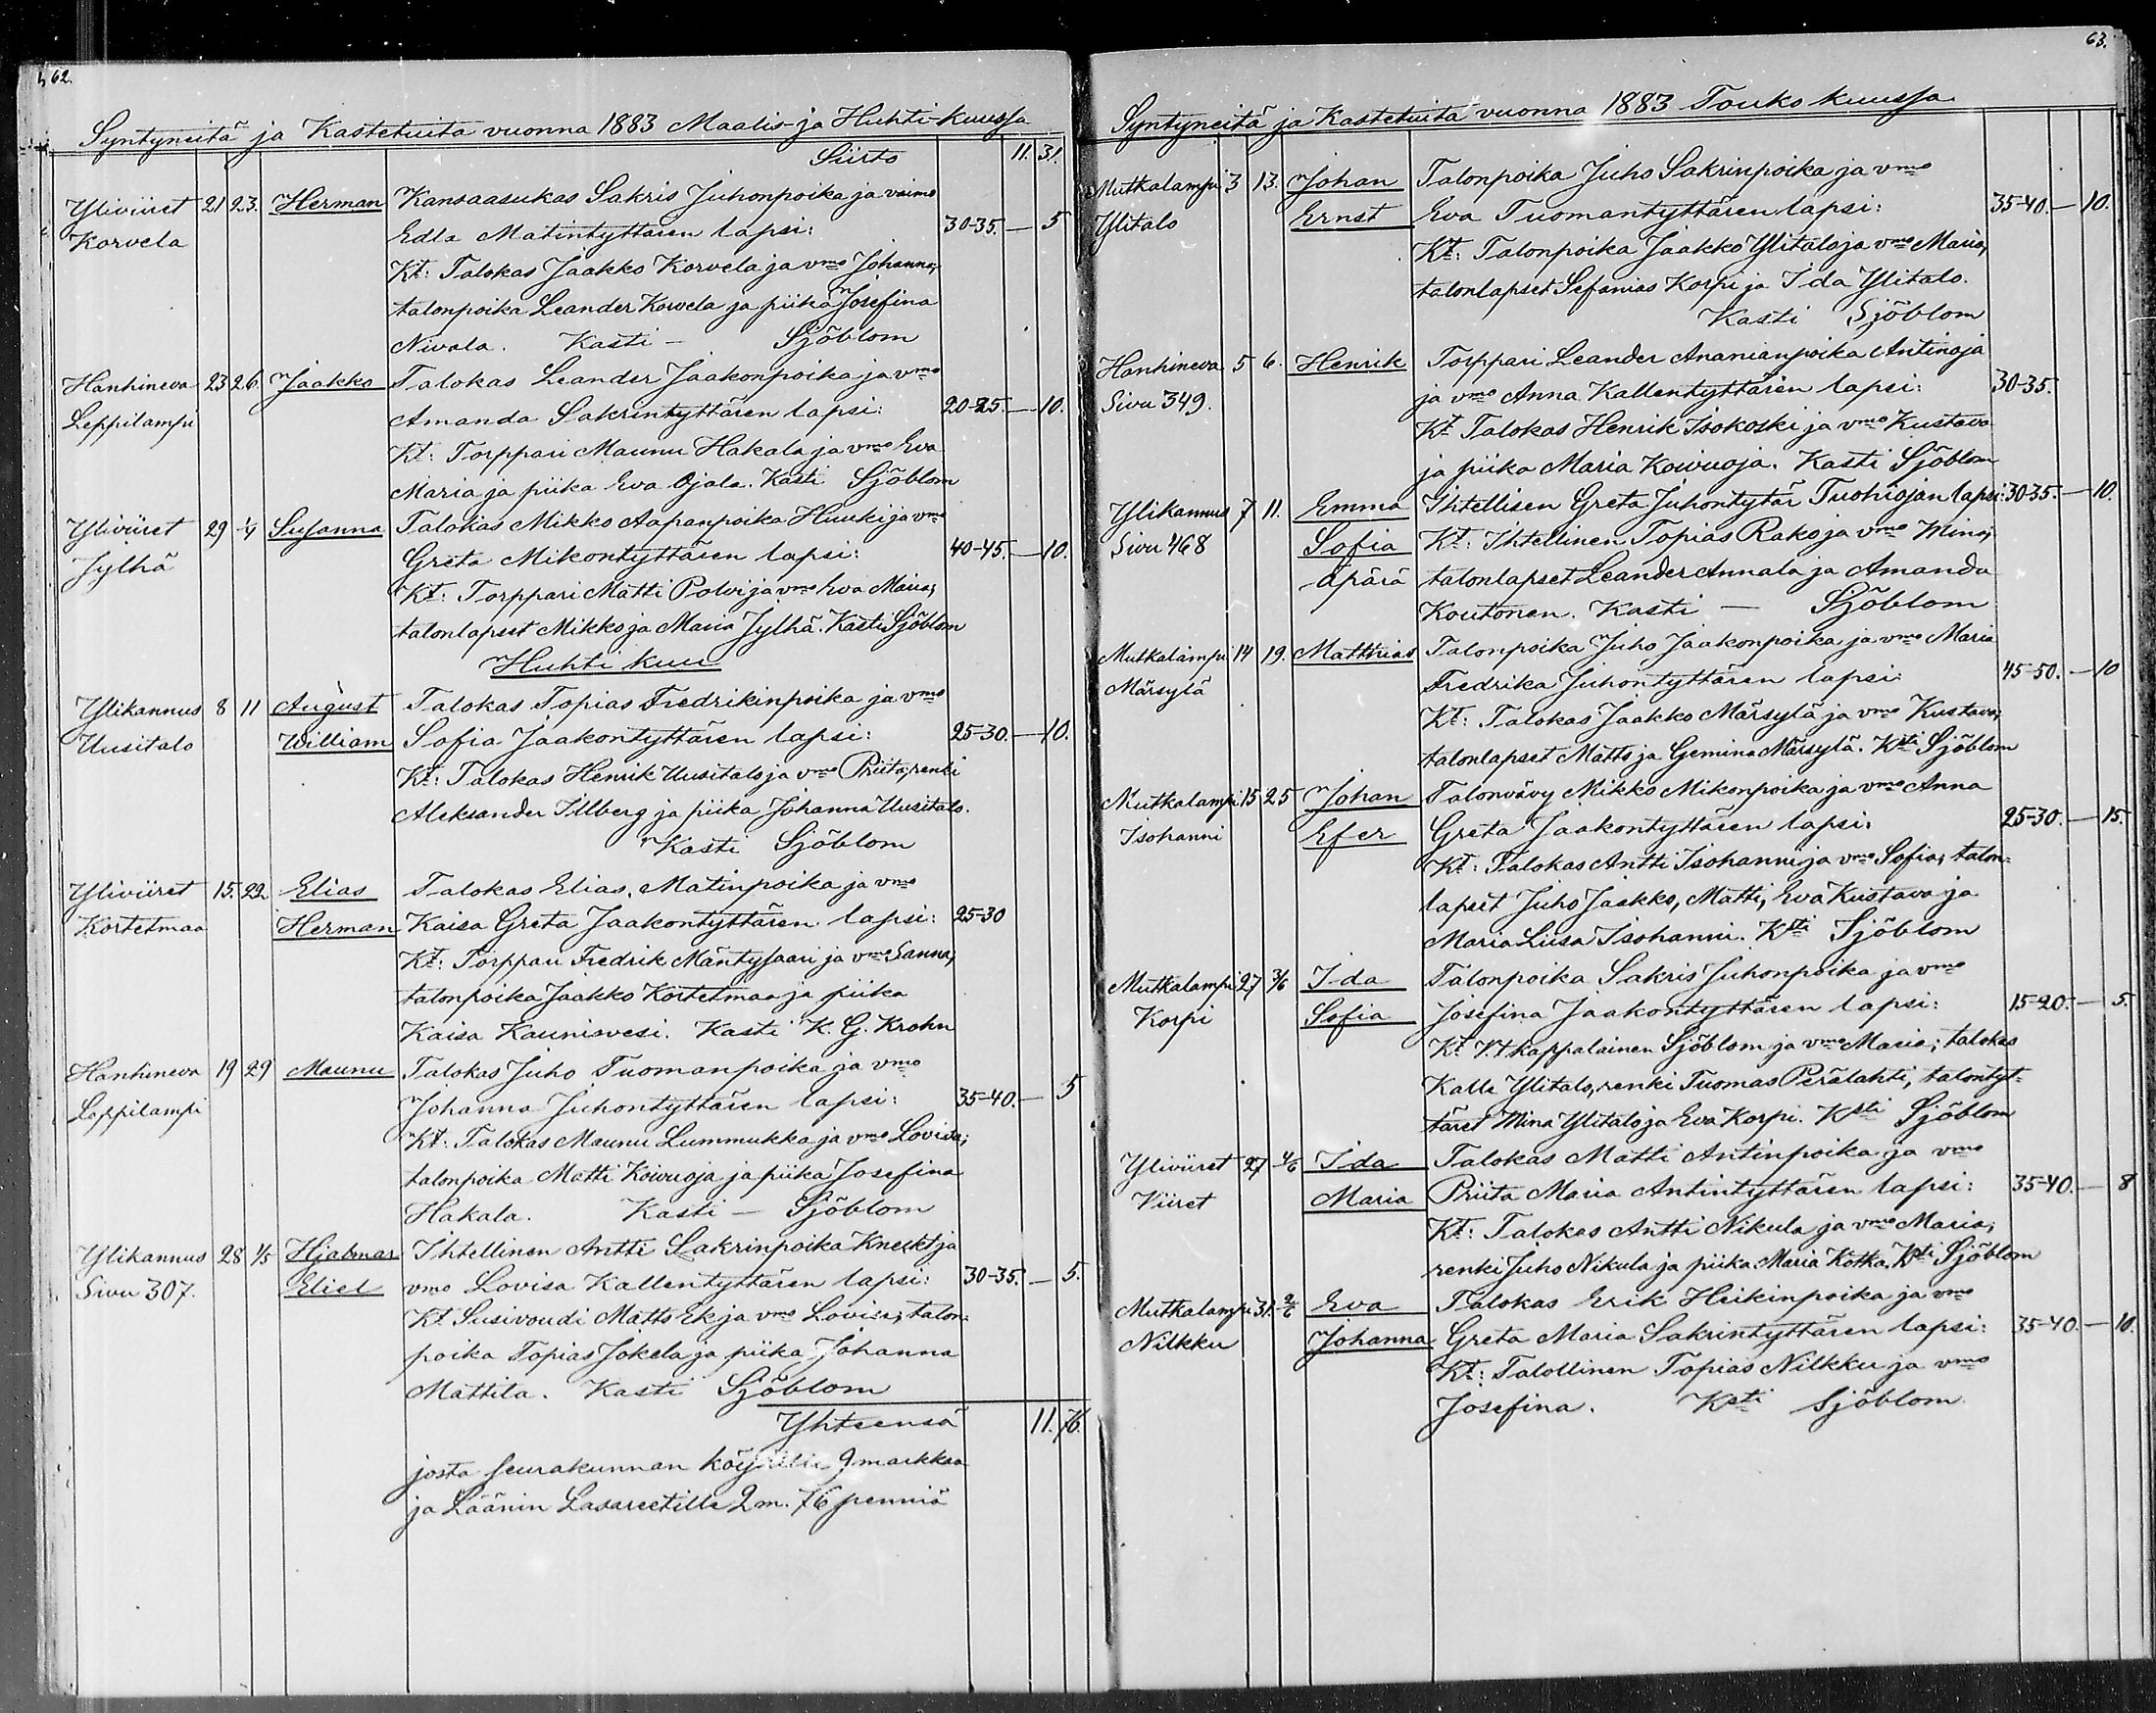 62.
Syntyneitä ja Kastetuita vuonna 1883 Maalis- ja Huhti-kuussa
Siirto 11. 31.
Yliviiret 21 23. Herman Kansaasukas Sakris Juhonpoika ja vaimo
Korvela Edla Matintyttären lapsi: 30-35. — 5
Kt: Talokas Jaakko Korvela ja vmo Johanna,
talonpoika Leander Korvela ja piika Josefina
Nivala. Kasti — Sjöblom
Hanhineva 23 26. Jaakko Talokas Leander Jaakonpoika ja vmo
Leppilampi Amanda Sakrintyttären lapsi: 20-25. — 10.
Kt: Torppari Maunu Hakala ja vmo Eva
Maria ja piika Eva Ojala. Kasti Sjöblom
Yliviiret 29 1/4 Susanna Talokas Mikko Aapanpoika Huuki ja vmo
Jylhä Greta Mikontyttären lapsi: 40-45. — 10.
Kt: Torppari Matti Polvi ja vmo Eva Maria;
talonlapset Mikko ja Maria Jylhä. Kasti Sjöblom
Huhti kuu
Ylikannus 8 11 August Talokas Topias Fredrikinpoika ja vmo
Uusitalo William Sofia Jaakontyttären lapsi: 25-30. — 10.
Kt: Talokas Henrik Uusitalo ja vmo Priita; renki
Aleksander Illberg ja piika Johanna Uusitalo.
Kasti Sjöblom
Yliviiret 15. 22. Elias Talokas Elias Matinpoika ja vmo
Kortetmaa Herman Kaisa Greta Jaakontyttären lapsi: 25-30
Kt: Torppari Fredrik Mäntysaari ja vmo Sanna;
talonpoika Jaakko Kortetmaa ja piika
Kaisa Kaunisvesi. Kasti K. G. Krohn
Hanhineva 19 29 Maunu Talokas Juho Tuomanpoika ja vmo
Leppilampi Johanna Juhontyttären lapsi: 35-40. — 5
Kt: Talokas Maunu Lummukka ja vmo Lovisa;
talonpoika Matti Koivuoja ja piika Josefina
Hakala. Kasti — Sjöblom
Ylikannus 28 1/5 Hjalmar Ihtellinen Antti Sakrinpoika Knekt ja
Sivu 307. Eliel vmo Lovisa Kallentyttären lapsi: 30-35. — 5.
Kt Susivoudi Matts Ek ja vmo Lovisa; talon-
poika Topias Jokela ja piika Johanna
Mattila. Kasti Sjöblom
Yhteensä 11. 76.
josta seurakunnan köyhille 9 markkaa
ja Läänin Lasareetille 2 m. 76 penniä
63.
Syntyneitä ja Kastetuita vuonna 1883 Touko kuussa
Mutkalampi 3 13. Johan Talonpoika Juho Sakrinpoika ja vmo
Ylitalo Ernst Eva Tuomantyttären lapsi: 35-40. — 10.
Kt: Talonpoika Jaakko Ylitalo ja vmo Maria,
talonlapset Sefanias Korpi ja Ida Ylitalo.
Kasti Sjöblom
Hanhineva 5 6. Henrik Torppari Leander Ananianpoika Antinoja
Sivu 349. ja vmo Anna Kallentyttären lapsi: 30-35.
Kt Talokas Henrik Isokoski ja vmo Kustava
ja piika Maria Koivuoja. Kasti Sjöblom
Ylikannus 7 11. Emma Ihtellisen Greta Juhontytär Tuohiojan lapsi: 30-35. — 10.
Sivu 468 Sofia Kt: Ihtellinen Topias Rako ja vmo Mina;
äpärä talonlapset Leander Annala ja Amanda
Koutonen. Kasti — Sjöblom
Mutkalampi 14 19. Matthias Talonpoika Juho Jaakonpoika ja vmo Maria
Märsylä Fredrika Juhontyttären lapsi: 45-50. — 10
Kt: Talokas Jaakko Märsylä ja vmo Kustava;
talonlapset Matts ja Gemina Märsylä. Ksti Sjöblom
Mutkalampi 15 25 Johan Talonvävy Mikko Mikonpoika ja vmo Anna
Isohanni Efer Greta Jaakontyttären lapsi. 25-30. — 15.
Kt: Talokas Antti Isohanni ja vmo Sofia; talon-
lapset Juho Jaakko, Matti, Eva Kustava ja
Maria Liisa Isohanni. Ksti Sjöblom
Mutkalampi 27 3/6 Ida Talonpoika Sakris Juhonpoika ja vmo
Korpi Sofia Josefina Jaakontyttären lapsi: 15-20. — 5.
Kt V.t kappalainen Sjöblom ja vmo Maria; talokas
Kalle Ylitalo, renki Tuomas Perälahti, talontyt-
täret Mina Ylitalo ja Eva Korpi. Ksti Sjöblom
Yliviiret 27 4/6 Ida Talokas Matti Antinpoika ja vmo
Viiret Maria Priita Maria Antintyttären lapsi: 35-40. — 8
Kt: Talokas Antti Nikula ja vmo Maria;
renki Juho Nikula ja piika Maria Kotka. Ksti Sjöblom
Mutkalampi 31. 2/6 Eva Talokas Erik Heikinpoika ja vmo
Nilkku Johanna Greta Maria Sakrintyttären lapsi: 35-40. — 10.
Kt: Talollinen Topias Nilkku ja vmo
Josefina. Ksti Sjöblom